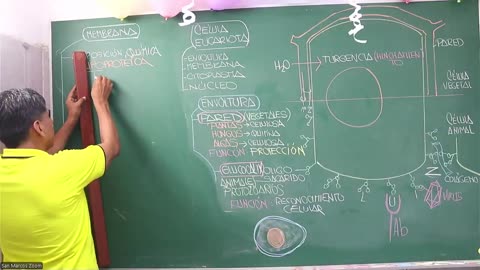 MEMBRANA
POSICIÓN QUÍMICA
LIPOPROTEICA
CÉLULA
EUCARIOTA
ENVOLTURA
MEMBRANA
CITOPLASMA
NÚCLEO
ENVOLTURA
PARED VEGETALES)
PLANTAS → CELULOSA
HONGOS → QUITINA
ALGAS → CELULOSA
FUNCIÓN: PROTECCIÓN
GLUCOCALIX OLIGO
ANIMALES SACÁRIDO
PROTOZOARIOS
FUNCIÓN: RECONOCIMIENTO
CELULAR
H2O
TURGENCIA (HINCHAMIENTO)
PARED
CÉLULA
VEGETAL
CÉLULA
ANIMAL
COLÁGENO
VIRUS
Ab
San Marcos Zoom